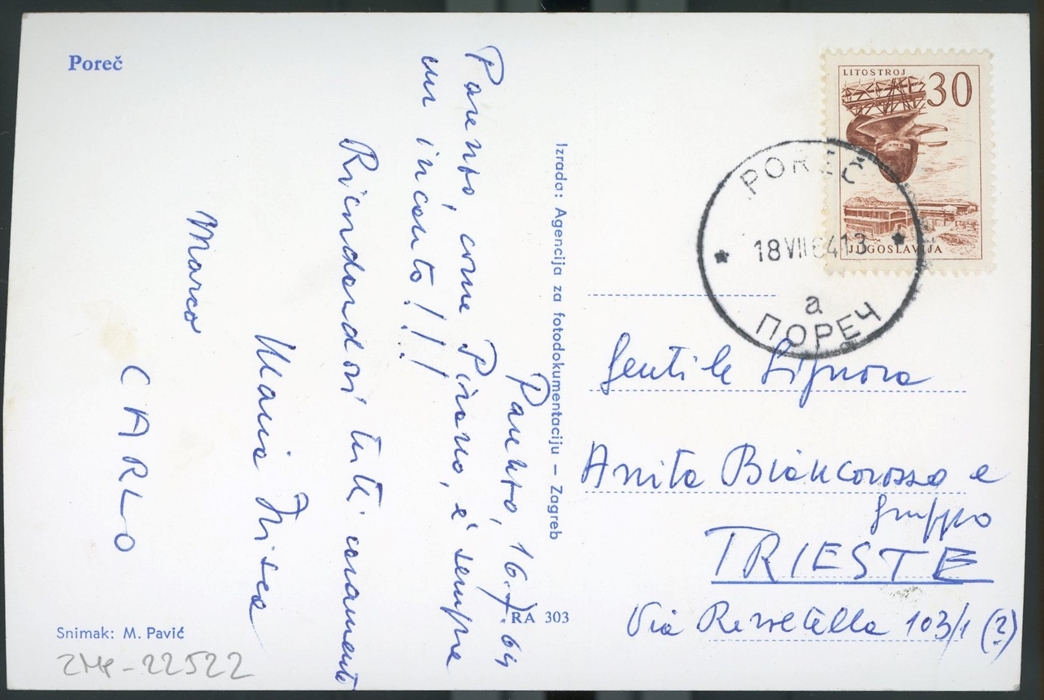 Poreč
Parenzo, 16.7.64
Parenzo, come Pirano, è sempre
un incanto!!!
Ricordandovi tutti caramente
Maria
Marco
CARLO
Izrada: Agencija za fotodokumentaciju – Zagreb
RA 303
Snimak: M. Pavić
ZMP-22522
LITOSTROJ
30
JUGOSLAVIJA
POREČ
18 VII 64 13
a
ПОРЕЧ
Gentile Signora
Anita Biancorosso e
gruppo
TRIESTE
Via 103/1 (?)